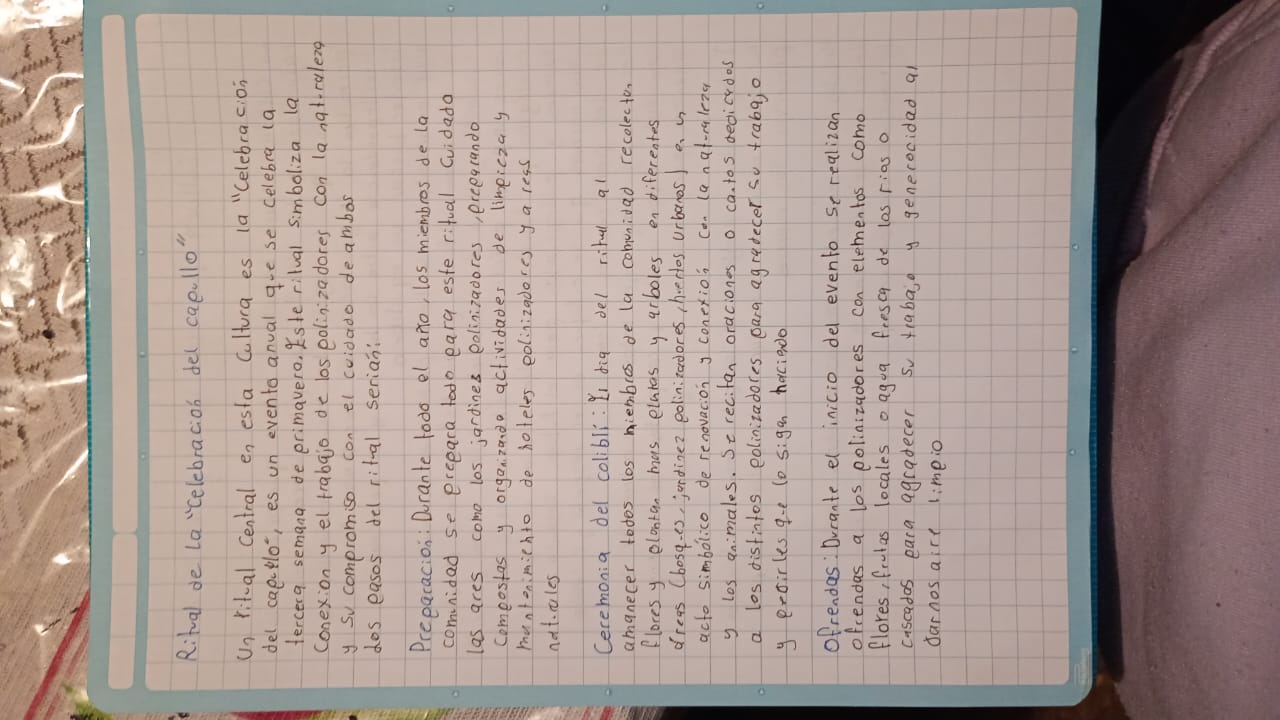 Ritual de la "Celebración del capullo"
Un ritual Central en esta Cultura es la "Celebracion
del capullo", es un evento anual que se celebra la
tercera semana de primavera. Este ritual simboliza la
Conexion y el trabajo de los polinizadores con la naturaleza
y su compromiso con el cuidado de ambos
dos pasos del ritual serian:
Preparacion: Durante todo el año, los miembros de la
comunidad se prepara todo para este ritual Cuidado
las ares como los jardines polinizadores, preparando
Compostas y organizando actividades de limpieza y
mantenimiento de hoteles polinizadores y areas
naturales
Ceremonia del coliblí: El dia del ritual al
amanecer todos los miembros de la comunidad recolectan
flores y plantan mas plantas y alboles en diferentes
áreas (bosques, jardinez polinizadores, huertos urbanos) en un
acto simbólico de renovación y conexión con la naturaleza
y los animales. Se recitan oraciones o cantos dedicados
a los distintos polinizadores para agradecer su trabajo
y pedirles que lo sigan haciendo
Ofrendas: Durante el inicio del evento se realizan
ofrendas a los polinizadores con elementos como
flores, frutas locales o agua fresca de los rios o
cascadas para agradecer su trabajo y generocidad al
darnos aire limpio